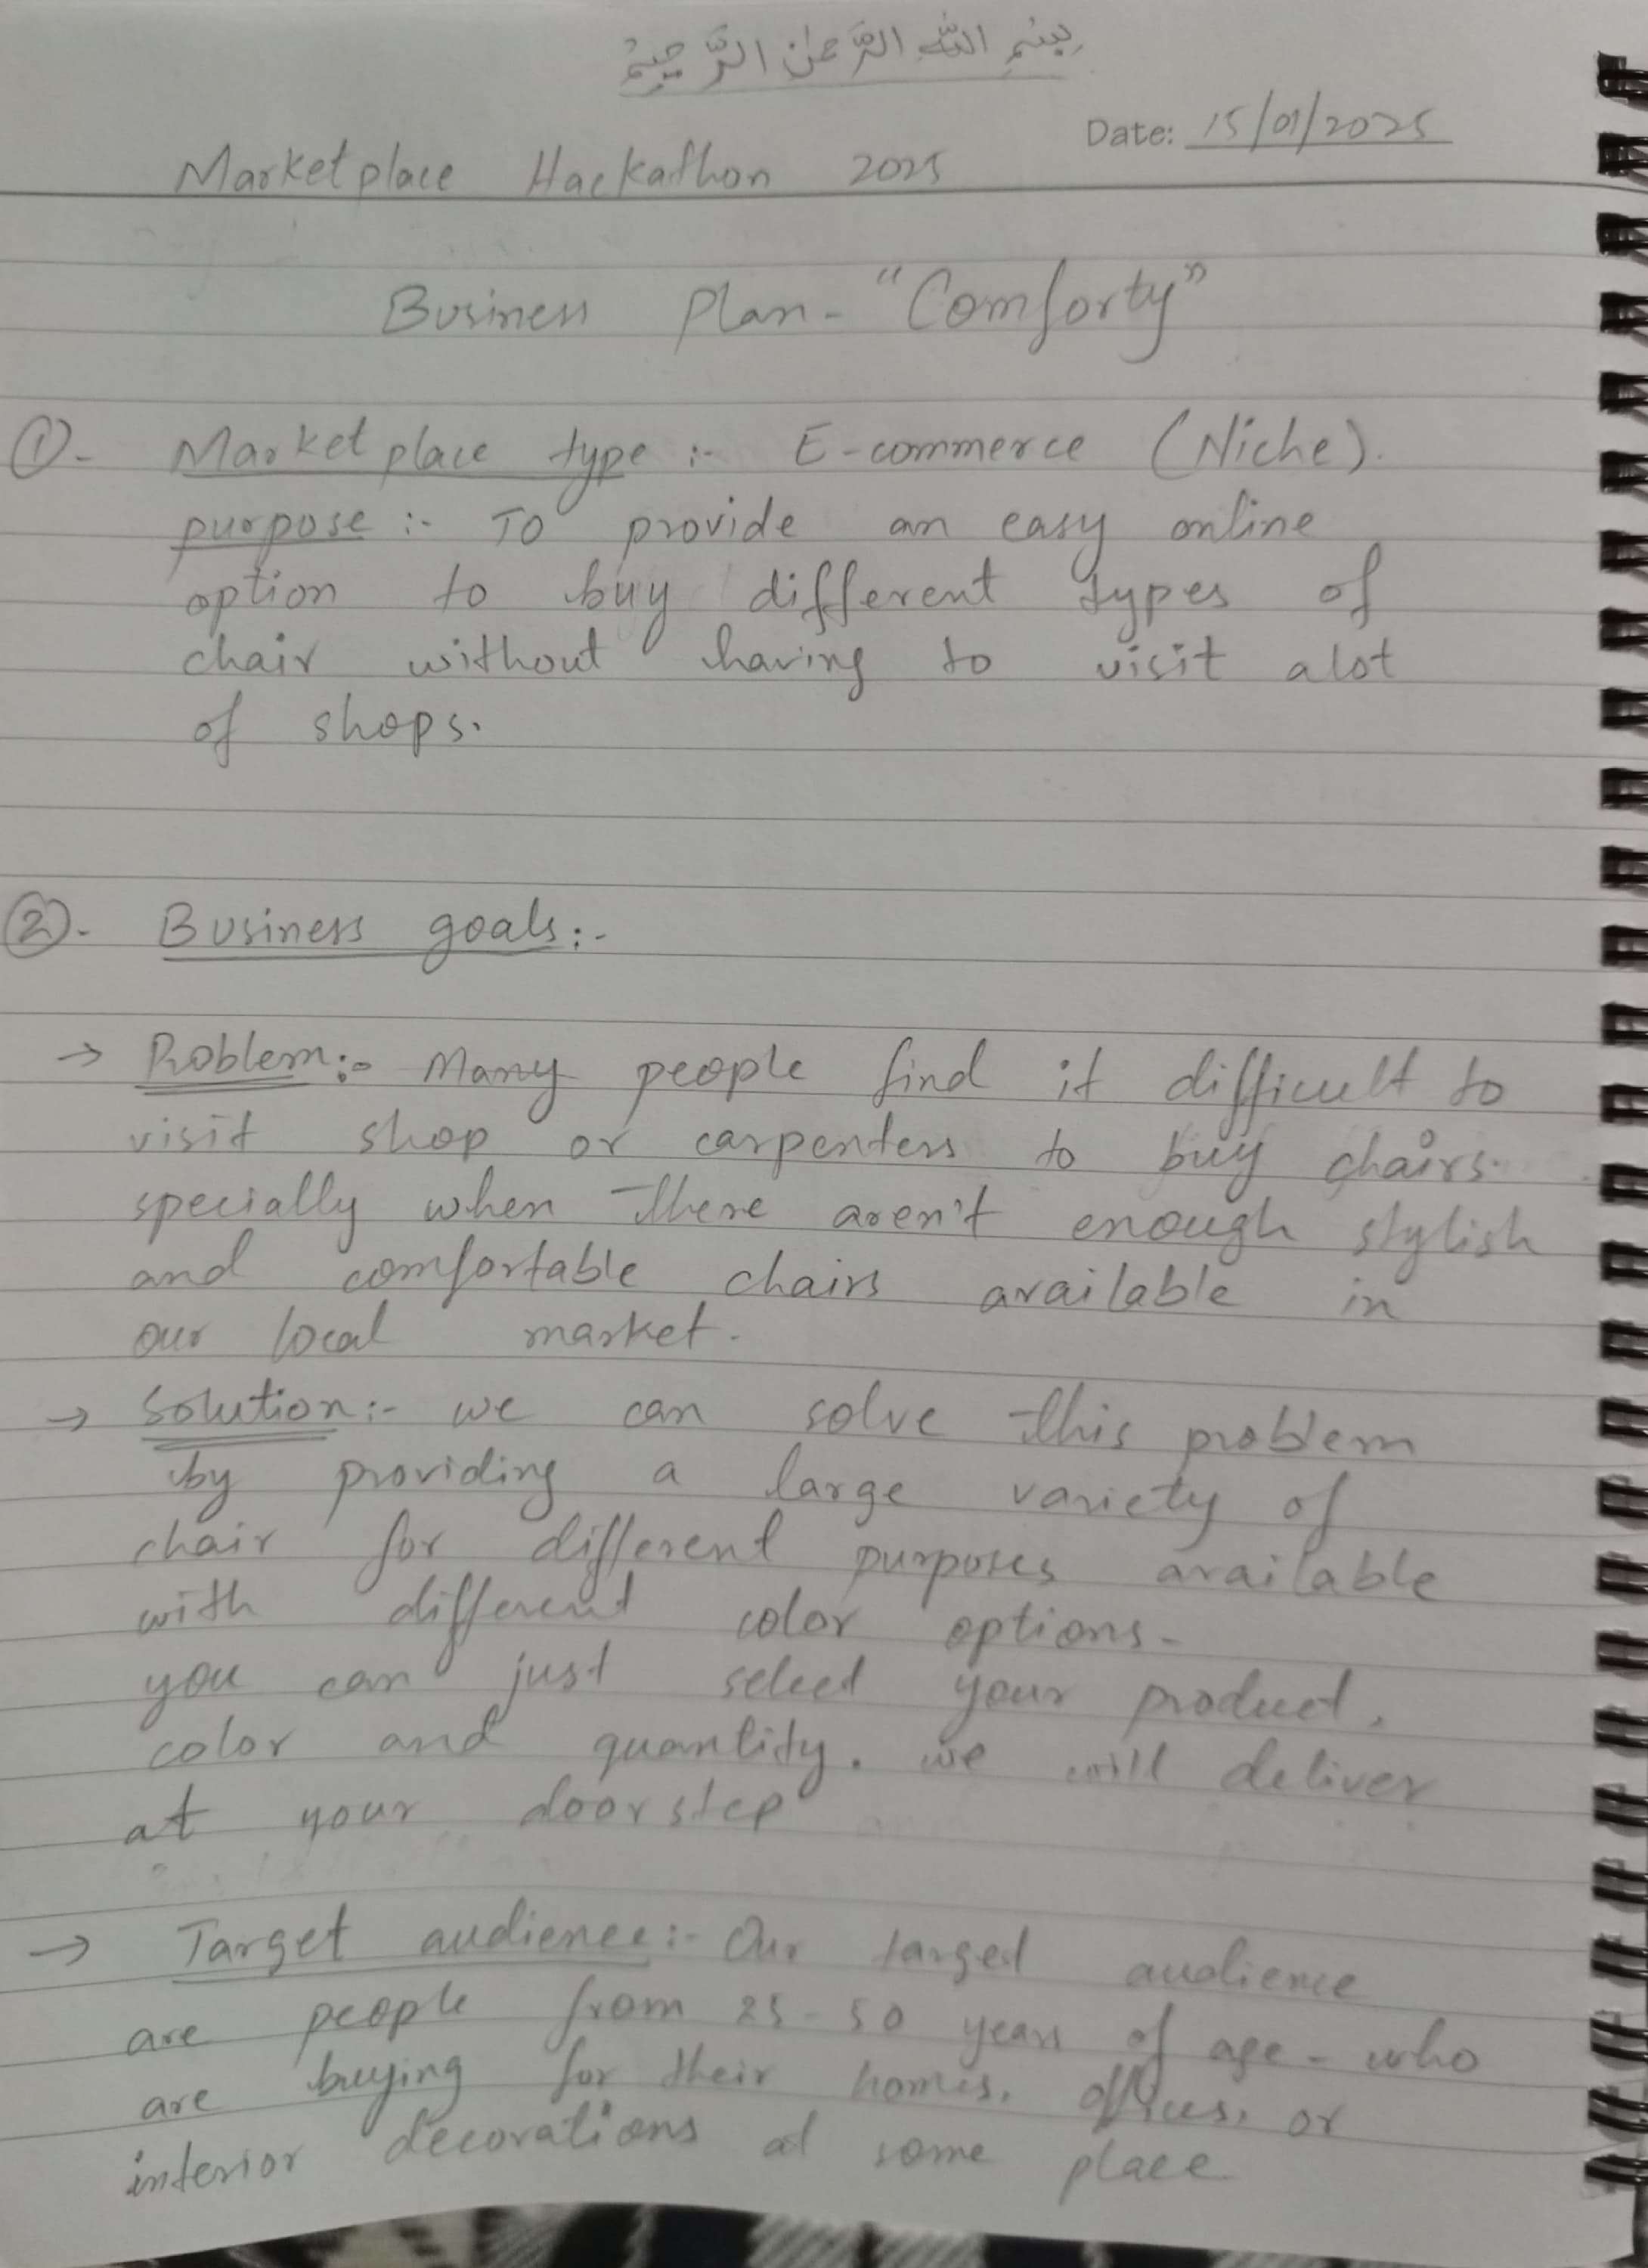 بِسْمِ اللهِ الرَّحْمٰنِ الرَّحِيْمِ
Date: 15/01/2025
Marketplace Hackathon 2025
Business Plan - "Comforty"
①- Marketplace type :- E-commerce (Niche).
purpose :- To provide an easy online
option to buy different types of
chair without having to visit alot
of shops.
②- Business goals:-
→ Problem:- Many people find it difficult to
visit shop or carpenters to buy chairs.
specially when there aren't enough stylish
and comfortable chairs available in
our local market.
→ Solution:- we can solve this problem
by providing a large variety of
chair for different purposes available
with different color options-
you can just select your product,
color and quantity. we will deliver
at your doorstep
→ Target audience:- Our target audience
are people from 25-50 years of age - who
are buying for their homes, offices, or
interior decorations at some place